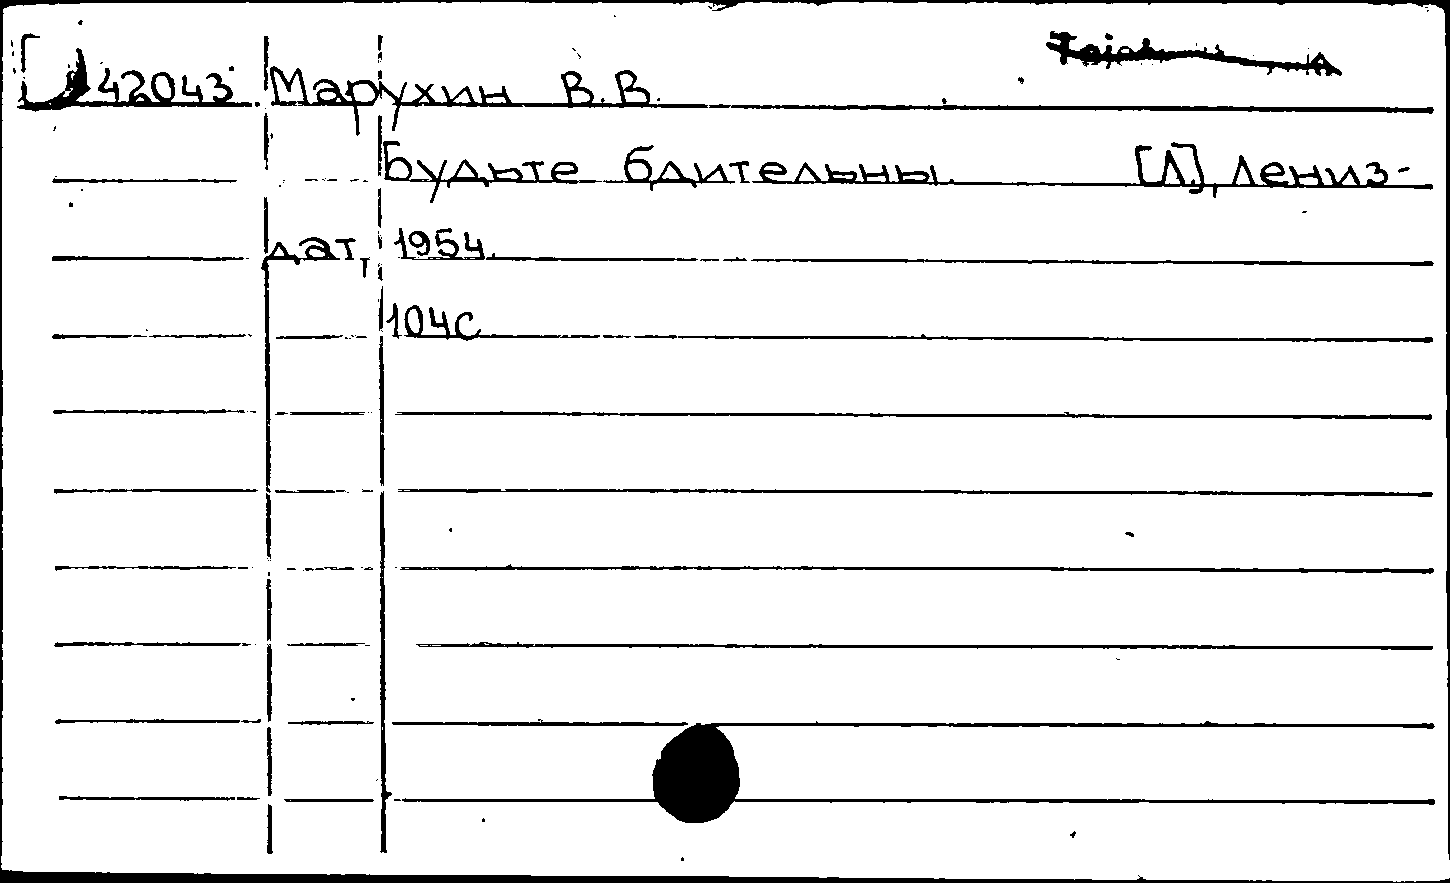 42043 Марухин В.В.
Будьте бдительны. [Л.], Лениз-
дат, 1954.
104с